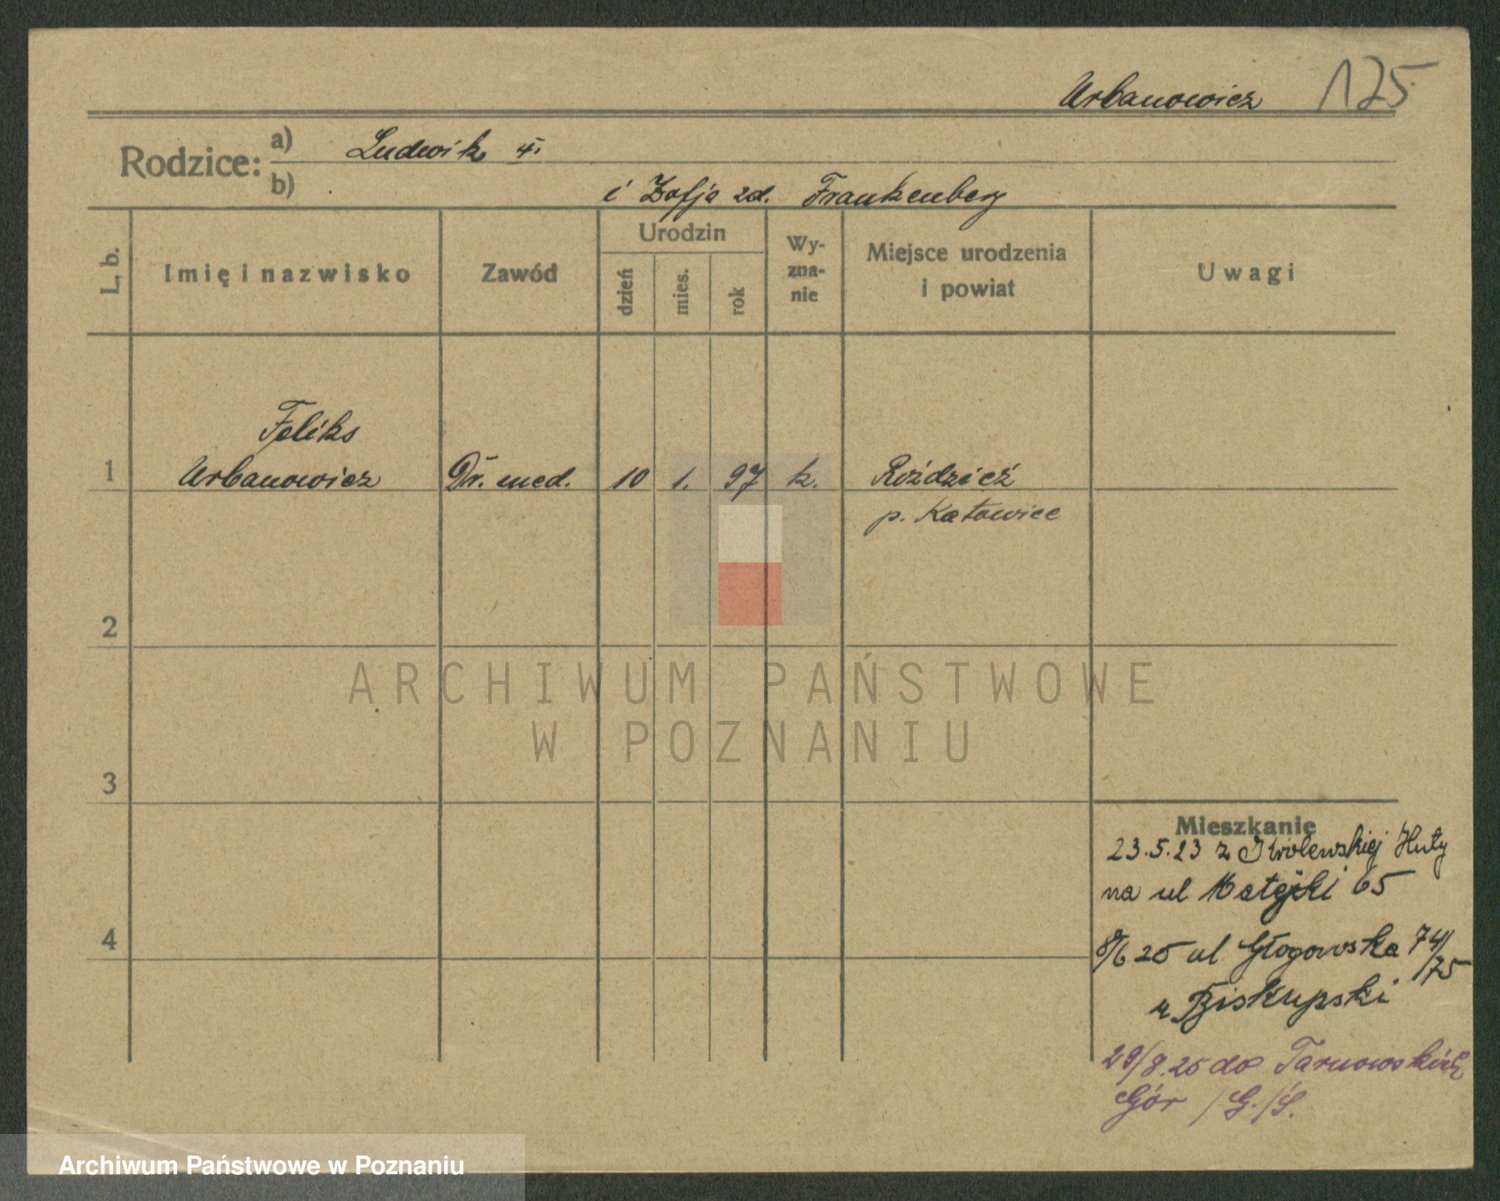 Urbanowicz 175
Rodzice: a) Ludwik
b) i Zofja zd. Frankenberg
L. b.
Imię i nazwisko
Zawód
Urodzin
dzień
mies.
rok
Wy-
zna-
nie
Miejsce urodzenia
i powiat
Uwagi
Feliks
1 Urbanowicz Dr. med. 10 1. 97 k. Roździeź
p. Katowice
2
3
4
Mieszkanie
23.5.23 z Królewskiej Huty
na ul Matejki 65
8/6 25 ul Głogowska 74/
75
u Biskupski
29/8.25 do Tarnowskich
Gór /G./Ś.
ARCHIWUM PAŃSTWOWE
W POZNANIU
Archiwum Państwowe w Poznaniu